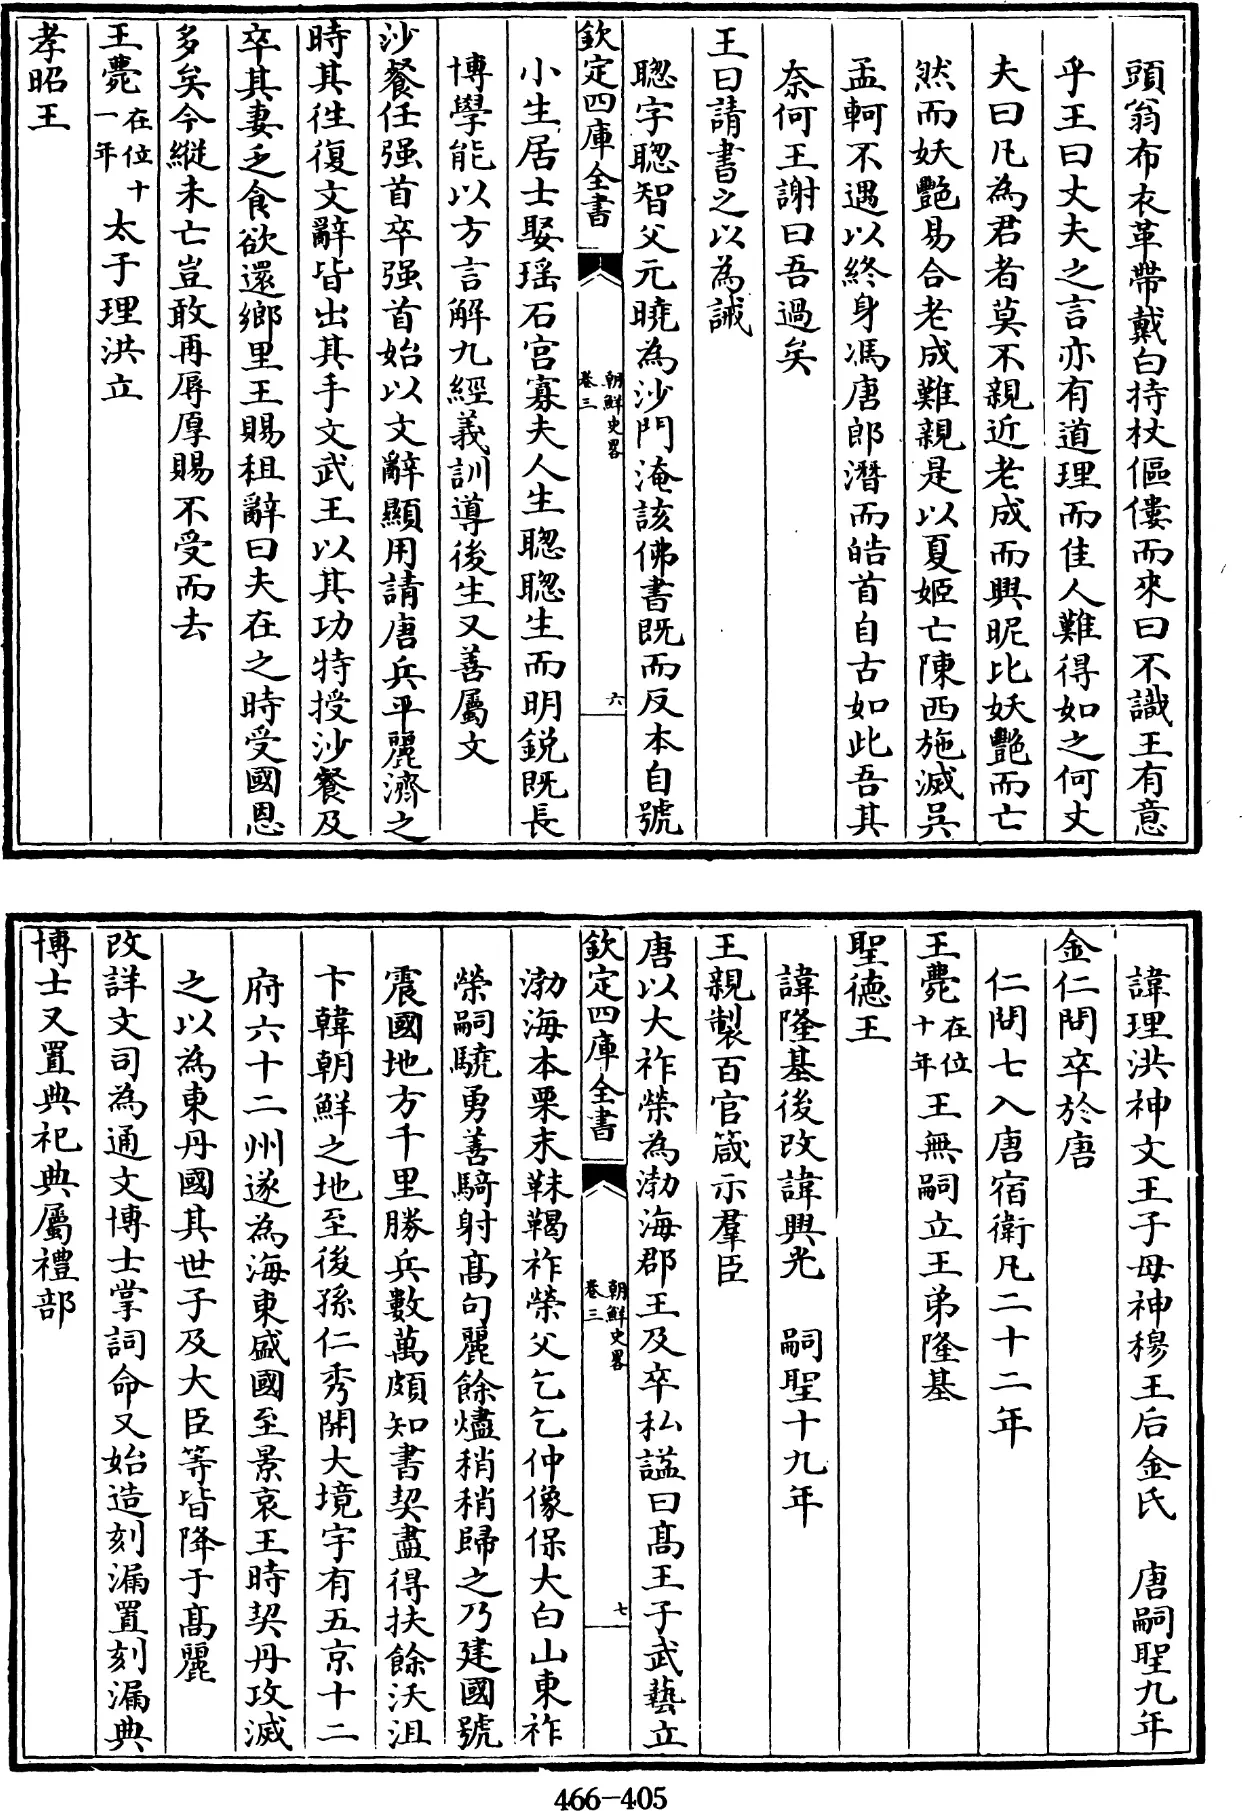 頭翁布衣革帶戴白持杖傴僂而來曰不識王有意
乎王曰丈夫之言亦有道理而佳人難得如之何丈
夫曰凡為君者莫不親近老成而興昵比妖艷而亡
然而妖艷易合老成難親是以夏姬亡陳西施滅吳
孟軻不遇以終身馮唐郎潛而皓首自古如此吾其
奈何王謝曰吾過矣
王曰請書之以為誡
聦字聦智父元曉為沙門淹該佛書既而反本自號
欽定四庫全書
朝鮮史畧
卷三
六
小生居士娶瑶石宫寡夫人生聦聦生而明鋭既長
博學能以方言解九經義訓導後生又善屬文
沙餐任强首卒强首始以文辭顯用請唐兵平麗濟之
時其徃復文辭皆出其手文武王以其功特授沙餐及
卒其妻乏食欲還鄉里王賜租辭曰夫在之時受國恩
多矣今縱未亡豈敢再辱厚賜不受而去
王薨在位十一年太子理洪立
孝昭王
諱理洪神文王子母神穆王后金氏　唐嗣聖九年
金仁問卒於唐
仁問七入唐宿衛凡二十二年
王薨在位十年王無嗣立王弟隆基
聖德王
諱隆基後改諱興光　嗣聖十九年
王親製百官箴示羣臣
唐以大祚榮為渤海郡王及卒私諡曰高王子武藝立
欽定四庫全書
朝鮮史畧
卷三
七
渤海本栗末靺鞨祚榮父乞乞仲像保大白山東祚
榮嗣驍勇善騎射高句麗餘燼稍稍歸之乃建國號
震國地方千里勝兵數萬頗知書契盡得扶餘沃沮
卞韓朝鮮之地至後孫仁秀開大境宇有五京十二
府六十二州遂為海東盛國至景哀王時契丹攻滅
之以為東丹國其世子及大臣等皆降于高麗
改詳文司為通文博士掌詞命又始造刻漏置刻漏典
博士又置典祀典屬禮部
466-405